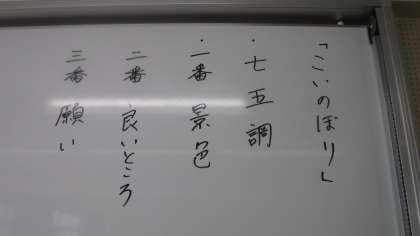 「こいのぼり」
・七五調
・一番 景色
二番 良いところ
三番 願い